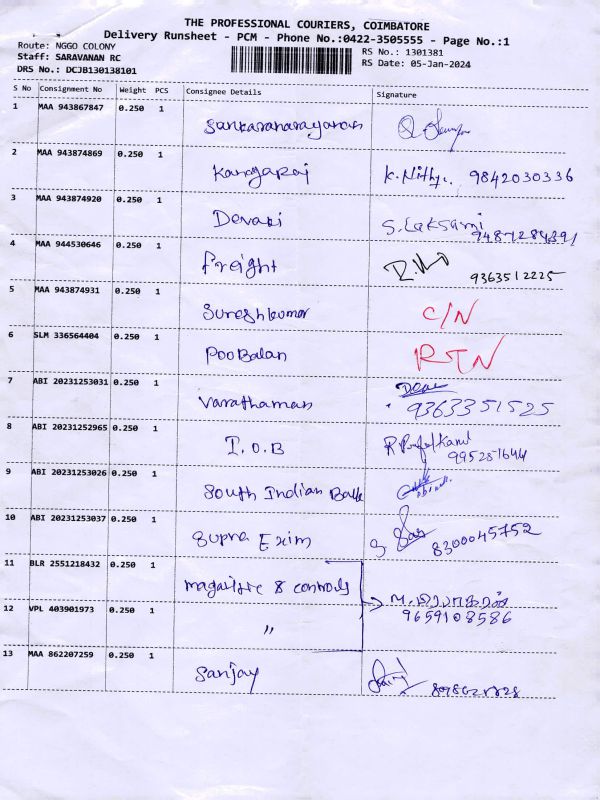 THE PROFESSIONAL COURIERS, COIMBATORE
Delivery Runsheet - PCM - Phone No.:0422-3505555 - Page No.:1
Route: NGGO COLONY
Staff: SARAVANAN RC
DRS No.: DCJB130138101
RS No.: 1301381
RS Date: 05-Jan-2024
S No Consignment No Weight PCS Consignee Details Signature
1 MAA 943867847 0.250 1 Sankaranarayanan
2 MAA 943874869 0.250 1 Kangaraj K. Nithy.. 9842030336
3 MAA 943874920 0.250 1 Devaki S. Laksami
9487284391
4 MAA 944530646 0.250 1 freight 9363512225
5 MAA 943874931 0.250 1 Sureshkumar C/N
6 SLM 336564404 0.250 1 PooBalan RTN
7 ABI 20231253031 0.250 1 Varathaman
9363351525
8 ABI 20231252965 0.250 1 I.O.B
9 ABI 20231253026 0.250 1 South Indian Bank
10 ABI 20231253037 0.250 1 Supra Exim 8300045752
11 BLR 2551218432 0.250 1 & controls
12 VPL 403901973 0.250 1 "
9659108586
13 MAA 862207259 0.250 1 Sanjay